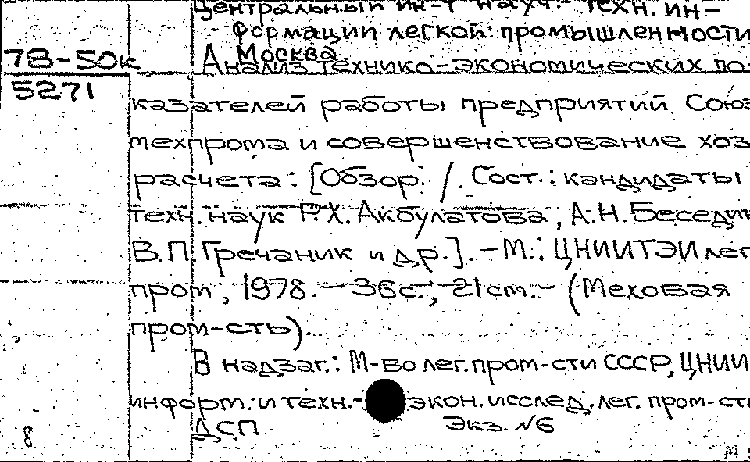 Центральный ин-т науч.-техн. ин-
формации легкой промышленности
Москва
78-50к
5271
Анализ технико-экономических по-
казателей работы предприятий Союз
мехпрома и совершенствование хоз
расчета: [Обзор / Сост.: кандидаты
техн. наук Р.Х. Акбулатова, А.Н. Беседин
В.П. Гречаник и др.]. – М.: ЦНИИТЭИлег
пром, 1978. – 36с.; 21см. – (Меховая
пром-сть).
В надзаг.: М-во лег. пром-сти СССР, ЦНИИ
информ. и техн.- экон. исслед. лег. пром-сти
ДСП Экз. №6
8